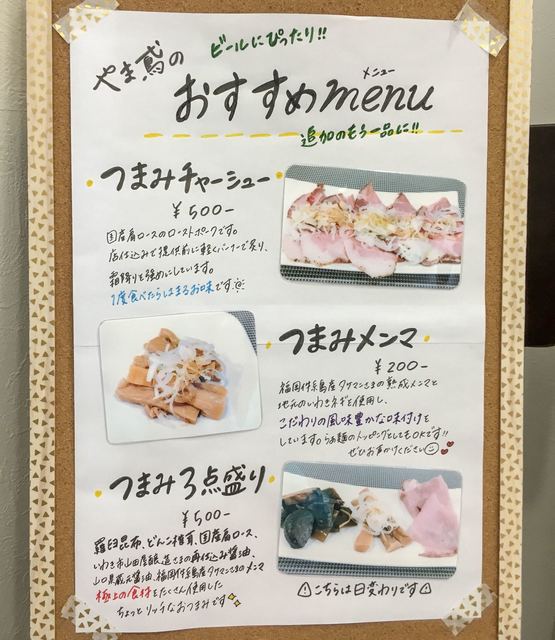 ビールにぴったり!!
やま鳶の
メニュー
おすすめmenu
追加のもう一品に!!
つまみチャーシュー
¥500-
国産肩ロースのローストポークです。
店仕込みで提供前に軽くバーナーで炙り、
霜降りを強めにしています。
1度食べたらはまるお味です
つまみメンマ
¥200-
福岡県糸島産タケマンさまの熟成メンマと
地元のいわきネギを使用し、
こだわりの風味豊かな味付けを
しています。らぁ麺のトッピングとしてもOKです!!
ぜひお声かけください
つまみ3点盛り
¥500-
羅臼昆布、どんこ椎茸、国産肩ロース、
いわき市山田屋醸造さまの再仕込み醤油、
山口県蔵元醤油、福岡県糸島産タケマンさまのメンマ
極上の食材をたくさん使用した
ちょっとリッチなおつまみです
こちらは日変わりです